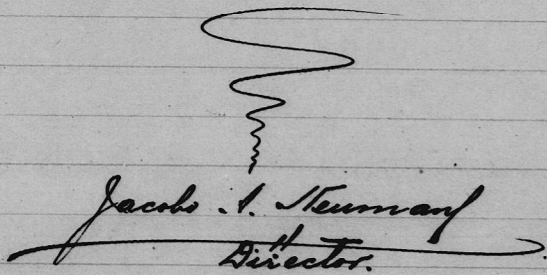 Jacobo A. Neumann
Director.